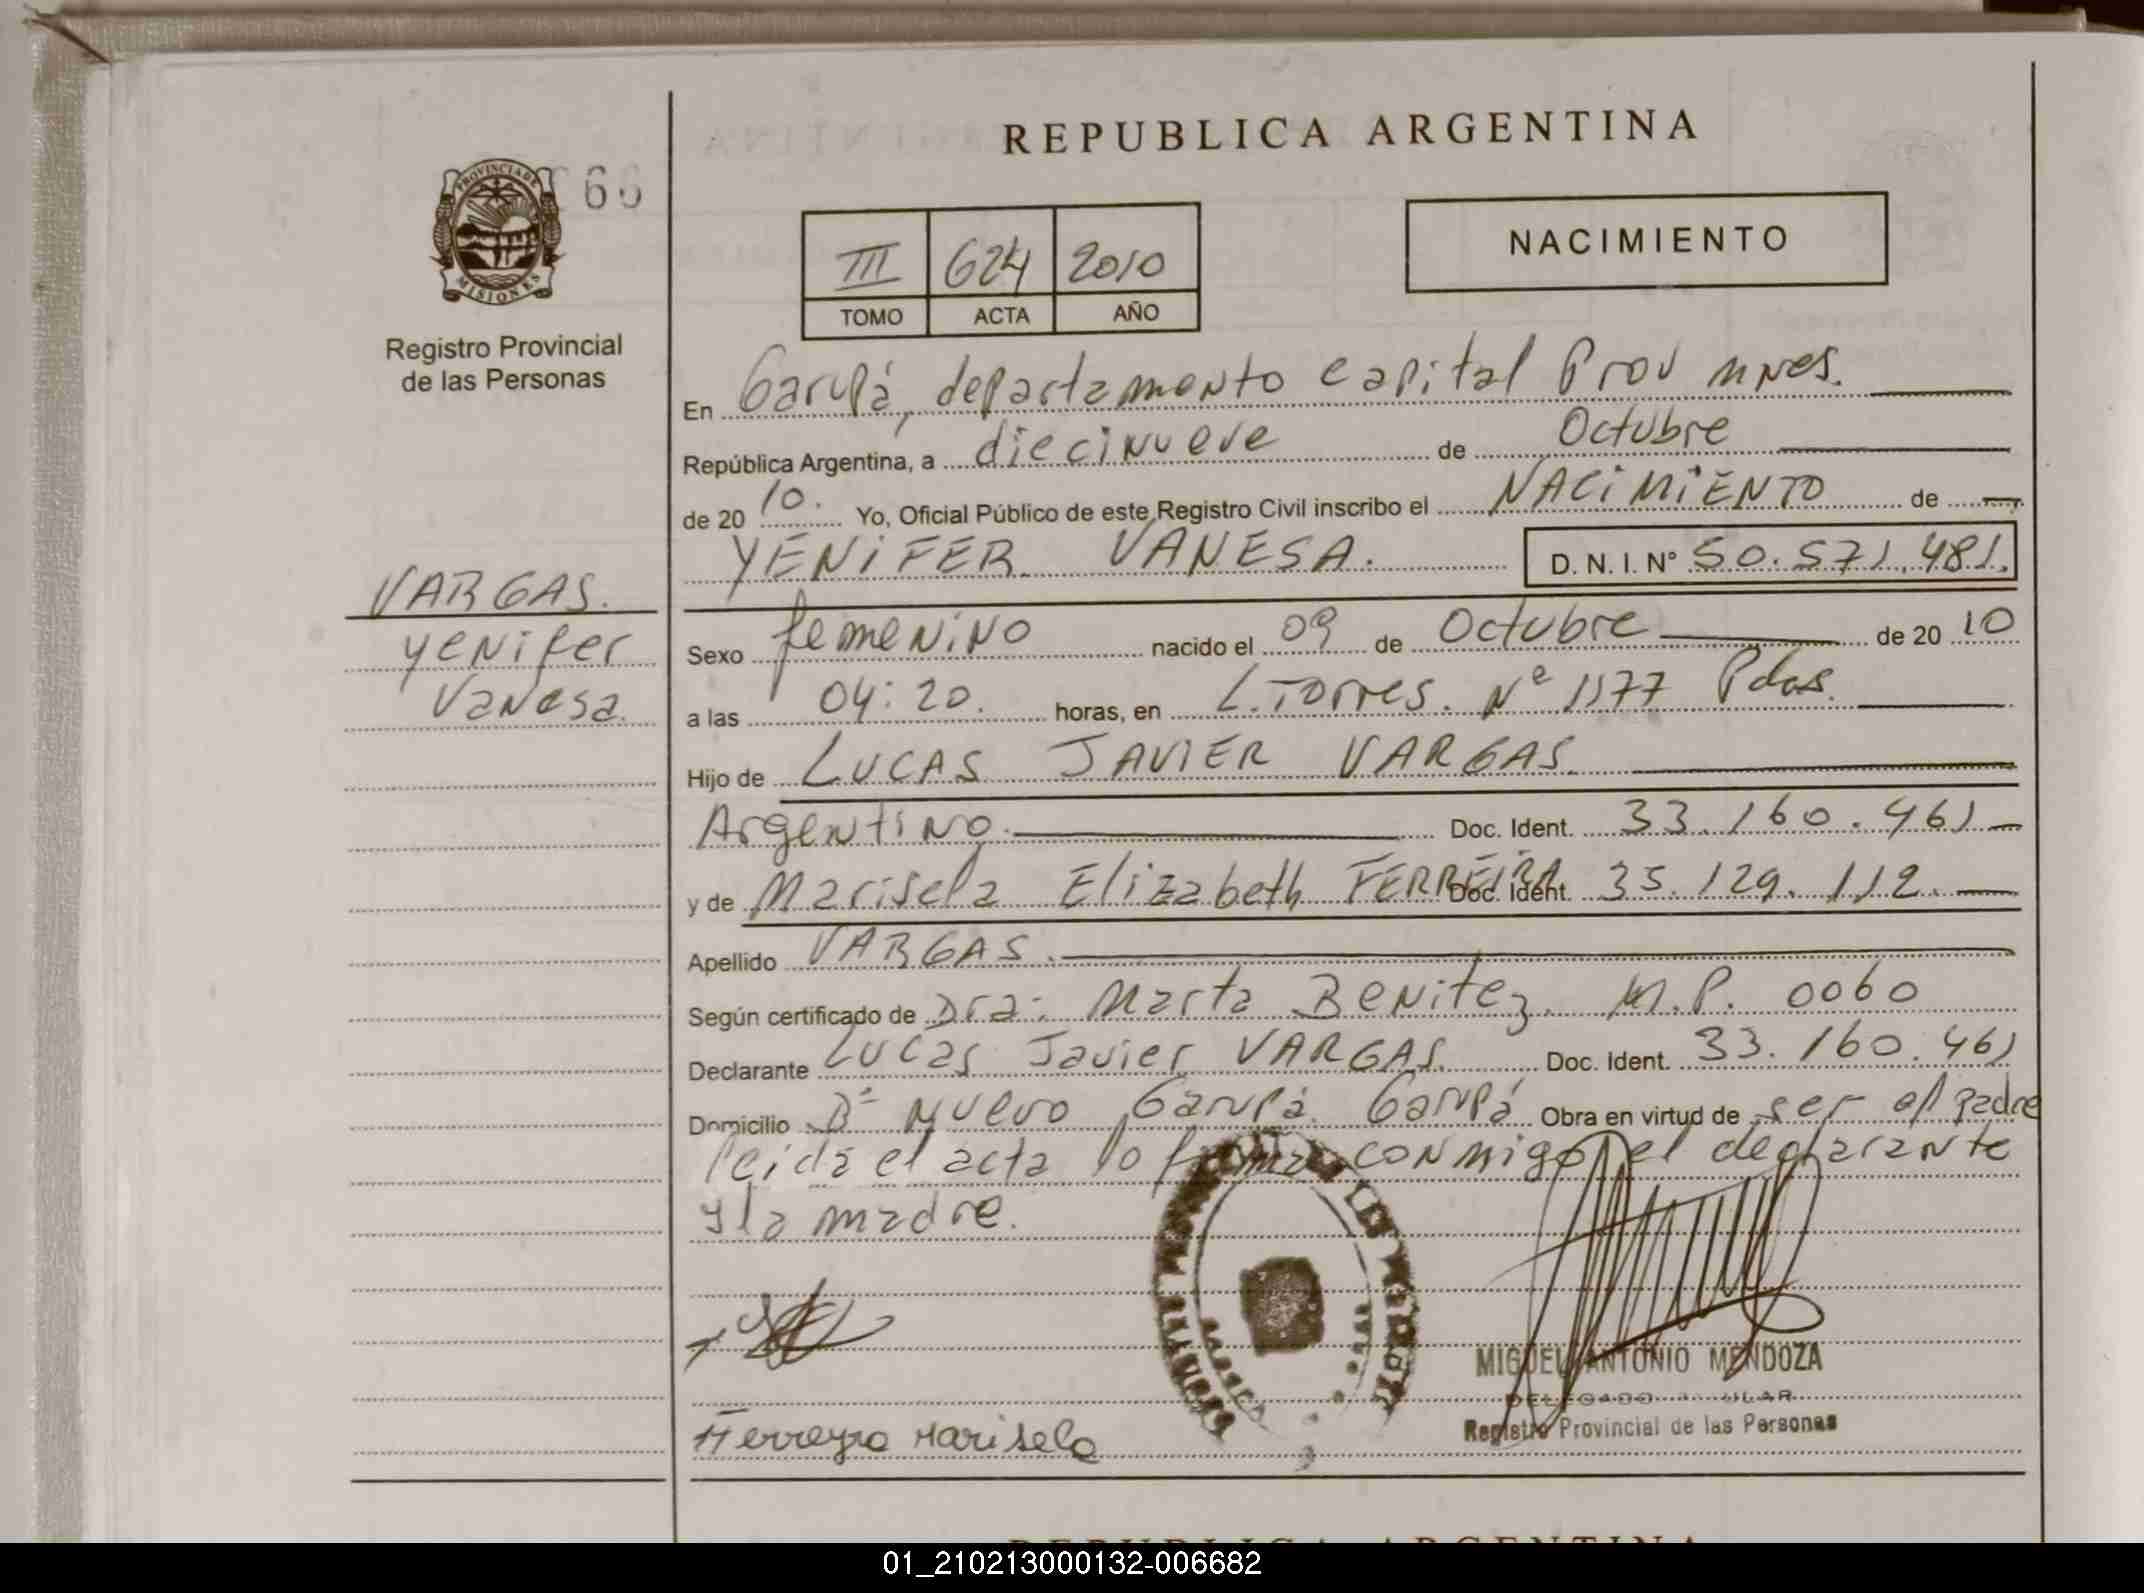 REPUBLICA ARGENTINA
PROVINCIA DE
MISIONES
66
Registro Provincial
de las Personas
NACIMIENTO
III 624 2010
TOMO ACTA AÑO
En Garupá, departamento capital Prov mnes.
República Argentina, a diecinueve de Octubre
de 20 10. Yo, Oficial Público de este Registro Civil inscribo el NACIMIENTO de
YENIFER VANESA. D. N. I. Nº 50.571.481.
VARGAS.
Yenifer
Vanesa.
Sexo femenino nacido el 09 de Octubre de 20 10
a las 04:20. horas, en L. Torres. Nº 1177 Pdas.
Hijo de LUCAS JAVIER VARGAS.
Argentino. Doc. Ident. 33.160.461
y de Marisela Elizabeth FERREIRA Doc. Ident. 35.129.112.
Apellido VARGAS.
Según certificado de Dra: Marta Benitez. M.P. 0060
Declarante Lucas Javier VARGAS. Doc. Ident. 33.160.461
Domicilio Bº Nuevo Garupá. Garupá Obra en virtud de ser el padre
leida el acta lo firma conmigo el declarante
y la madre.
MIGUEL ANTONIO MENDOZA
DELEGADO TITULAR
Registro Provincial de las Personas
Ferreyra Marisela
REPUBLICA ARGENTINA
01_210213000132-006682